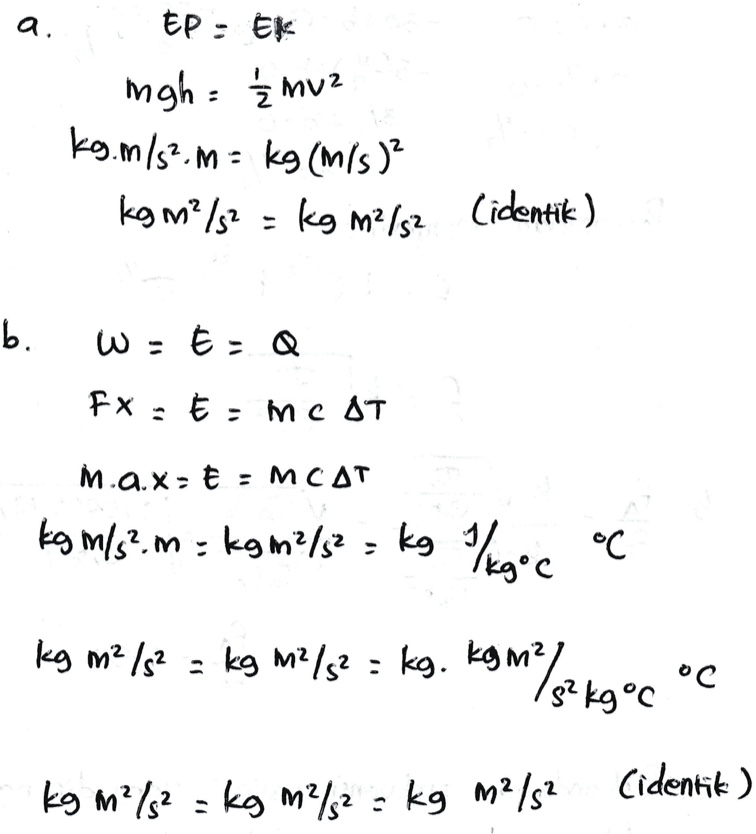 a. EP = EK
mgh = ½ mv²
kg.m/s².m = kg (m/s)²
kg m²/s² = kg m²/s² (identik)
b. W = E = Q
Fx = E = m c ΔT
m.a.x = E = m c ΔT
kg m/s².m = kg m²/s² = kg J/kg°C °C
kg m²/s² = kg m²/s² = kg. kg m²/s² kg°C °C
kg m²/s² = kg m²/s² = kg m²/s² (identik)